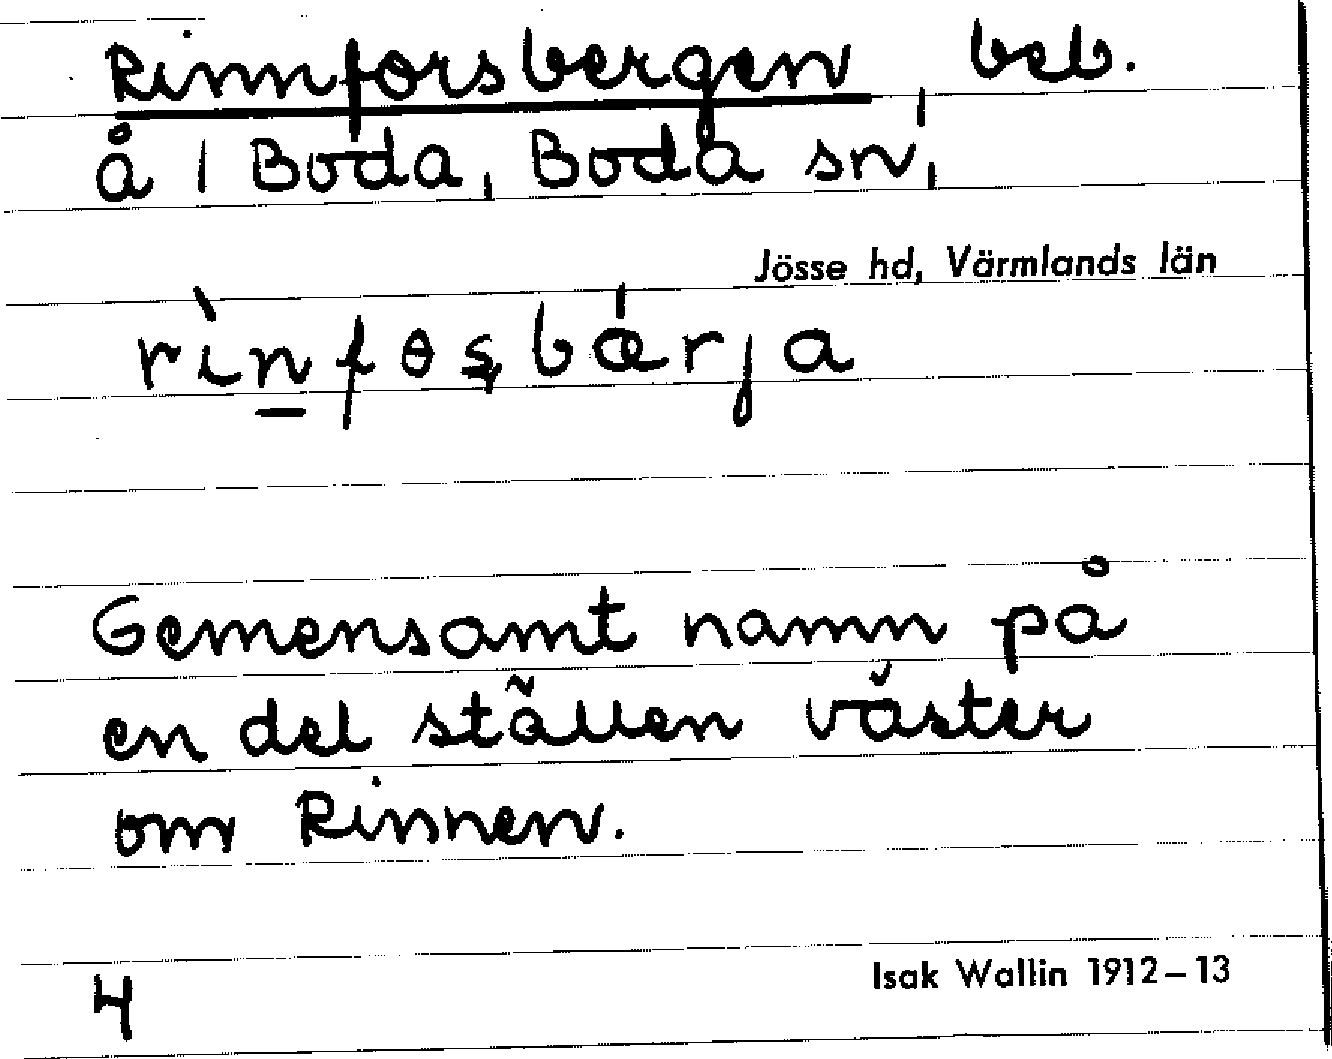 Rinnforsbergen, beb.
å 1 Boda, Boda sn,
Jösse hd, Värmlands län
rìn̲fɵʂbǽrja
Gemensamt namn på
en del ställen väster
om Rinnen.
4
Isak Wallin 1912–13